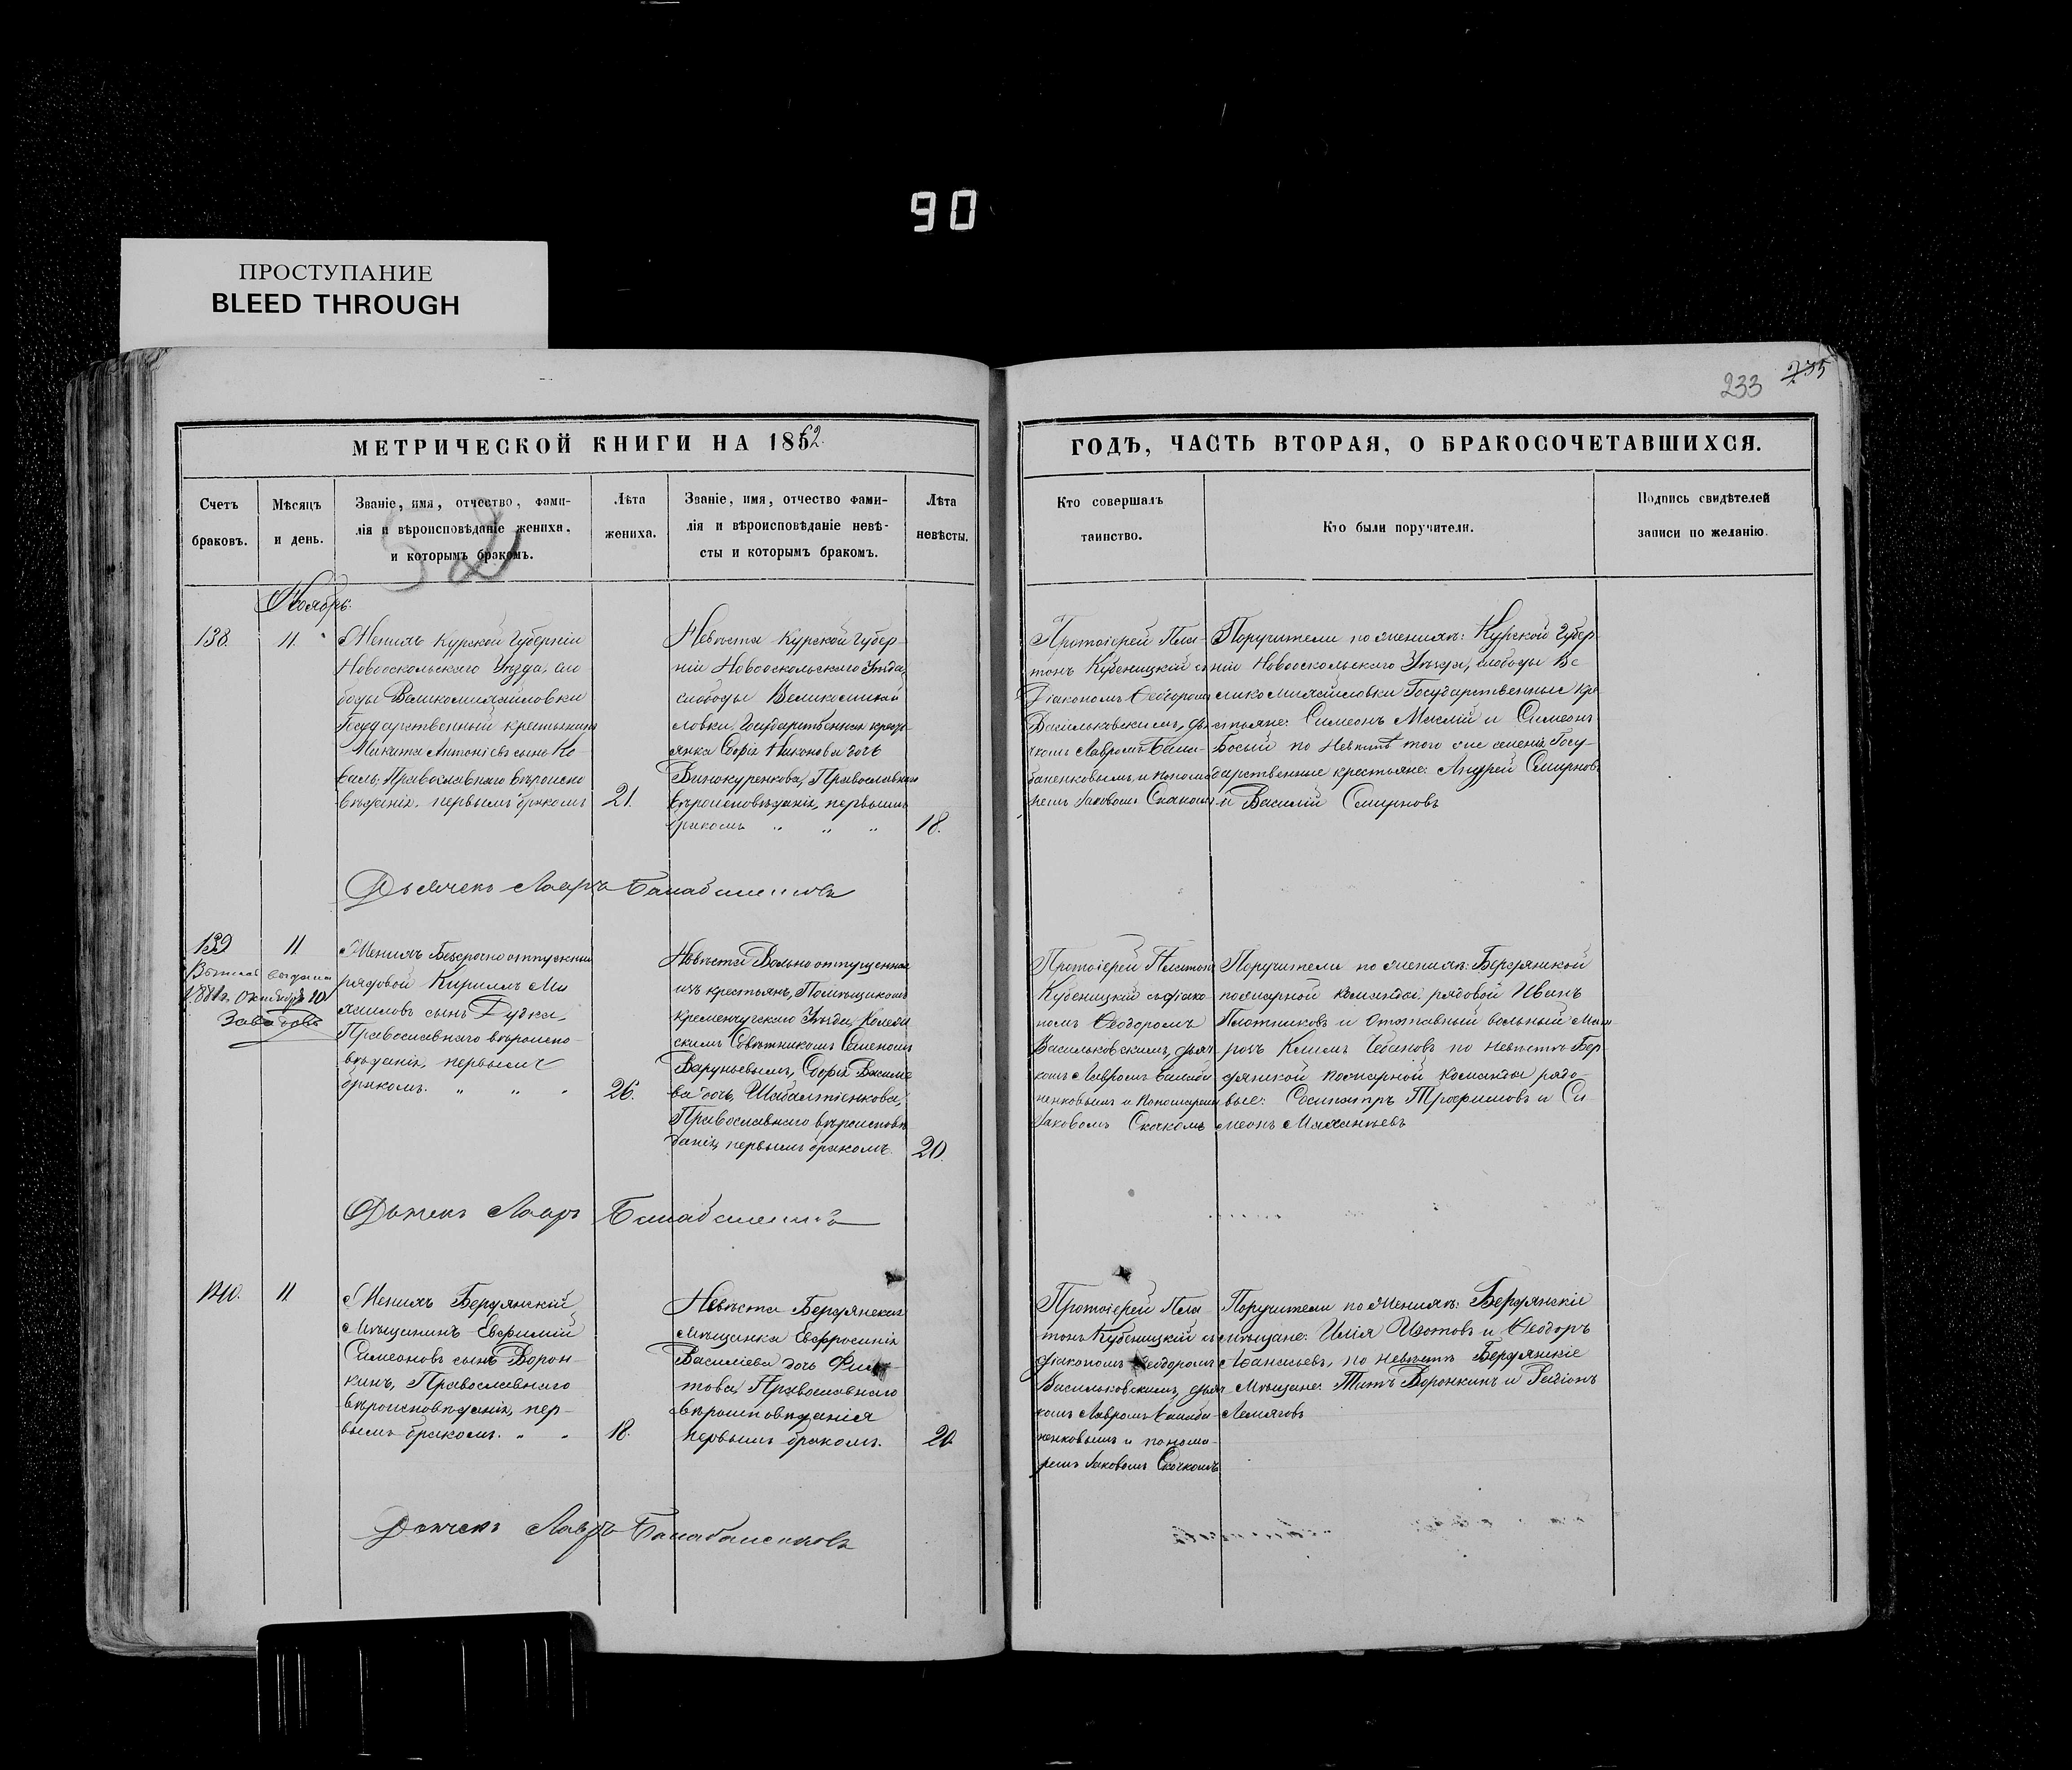 90
ПРОСТУПАНИЕ
BLEED THROUGH
233
235
МЕТРИЧЕСКОЙ КНИГИ НА 1862
ГОДЪ, ЧАСТЬ ВТОРАЯ, О БРАКОСОЧЕТАВШИХСЯ.
Счетъ
браковъ.
Мѣсяцъ
и день.
Званіе, имя, отчество, фами-
лія и вѣроисповѣданіе жениха,
и которымъ бракомъ.
Лѣта
жениха.
Званіе, имя, отчество фами-
лія и вѣроисповѣданіе невѣ-
сты и которымъ бракомъ.
Лѣта
невѣсты.
Кто совершалъ
таинство.
Кто были поручители.
Подпись свидѣтелей
записи по желанію.
Ноябрь.
138.
11.
Женихъ Курской Губерніи
Новооскольскаго Уѣзда, сло
боды Великомихайловки
Государственный крестьянинъ
Никита Антоніевъ сынъ Ко
валь, Православнаго вѣроиспо
вѣданія, первымъ бракомъ
21.
Невѣста Курской Губер
ніи Новооскольскаго Уѣзда,
слободы Великомихай
ловки Государственная кресть
янка Софія Никонова дочь
Винокуренкова, Православнаго
вѣроисповѣданія, первымъ
бракомъ " " "
18.
Протоіерей Пла-
тонъ Кубеницкій съ
Діакономъ Ѳеодоромъ
Васильковскимъ, дья
чкомъ Лавромъ Бала-
баненковымъ, и понома
ремъ Іаковомъ Скачкомъ
Поручители по женихѣ: Курской Губер
ніи Новооскольскаго Уѣзда, слободы Ве
ликомихайловки Государственные кре
стьяне: Симеонъ Маслій и Симеонъ
Босый по Невѣстѣ того же селенія Госу-
дарственные крестьяне: Андрей Смирновъ
и Василій Смирновъ
Дьячекъ Лавръ Балабаненковъ
139
11
Выпись выдана
1881 г. октября 10
Завадовъ
Женихъ Безсрочноотпускный
рядовой Кириллъ Ми
хаиловъ сынъ Дудка,
Православнаго вѣроиспо-
вѣданія, первымъ
бракомъ. " " "
26.
Невѣста Вольноотпущенная
изъ крестьянъ, Помѣщикомъ
Кременчугскаго Уѣзда, Коллеж
скимъ Совѣтникомъ Семеномъ
Софія Василіе
ва дочь
Православнаго вѣроисповѣ
данія, первымъ бракомъ.
20.
Протоіерей Платонъ
Кубеницкій съ діако-
номъ Ѳеодоромъ
Васильковскимъ, дьяч
комъ Лавромъ Балаба
ненковымъ и Пономаремъ
Іаковомъ Скачкомъ
Поручители по женихѣ: Бердянской
пожарной команды, рядовой Иванъ
Плотниковъ и Отставный вольный Мат-
розъ Климъ Чебановъ по невѣстѣ Бер-
дянской пожарной команды рядо-
вые: Сосипатръ Трофимовъ и Си
меонъ Маханьевъ
Дьячекъ Лавръ Балабаненковъ
140.
11
Женихъ Бердянскій
Мѣщанинъ Евфимій
Симеоновъ сынъ Ворон-
кинъ, Православнаго
вѣроисповѣданія, пер-
вымъ бракомъ. " "
18.
Невѣста Бердянская
Мѣщанка Евфросинія
Василіева дочь
това, Православнаго
вѣроисповѣданія
первымъ бракомъ.
20
Протоіерей Пла
тонъ Кубеницкій съ
діакономъ Ѳеодоромъ
Васильковскимъ, дьяч
комъ Лавромъ Балаба
ненковымъ и понома-
ремъ Іаковомъ Скачкомъ
Поручители по женихѣ: Бердянскіе
мѣщане: Илія Изотовъ и Ѳеодоръ
Аѳанасьевъ, по невѣстѣ Бердянскіе
Мѣщане: Титъ Воронкинъ и Родіонъ
Дьячекъ Лавръ Балабаненковъ